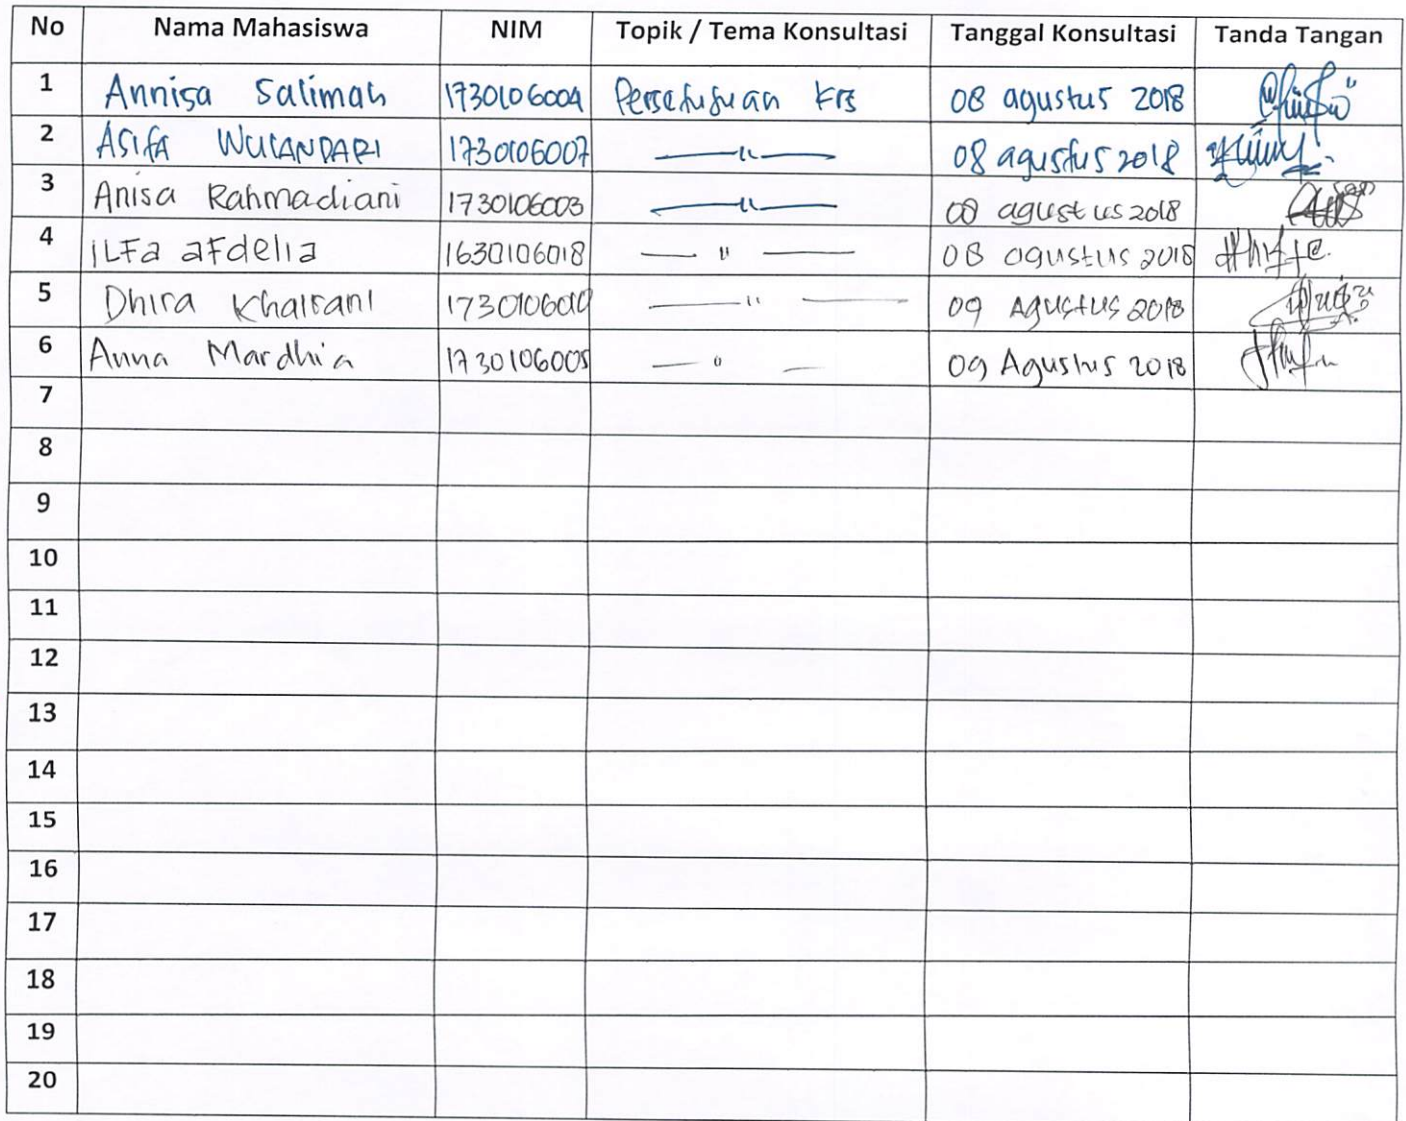 No Nama Mahasiswa NIM Topik / Tema Konsultasi Tanggal Konsultasi Tanda Tangan
1 Annisa Salimah 1730106004 Persetujuan KRS 08 agustus 2018
2 Asifa WULANDARI 1730106007 —"— 08 agustus 2018
3 Anisa Rahmadiani 1730106003 —"— 08 agustus 2018
4 iLFa aFdelia 1630106018 — " — 08 agustus 2018
5 Dhira Khairani —"— 09 Agustus 2018
6 Anna Mardhia 1730106005 — " — 09 Agustus 2018
7
8
9
10
11
12
13
14
15
16
17
18
19
20